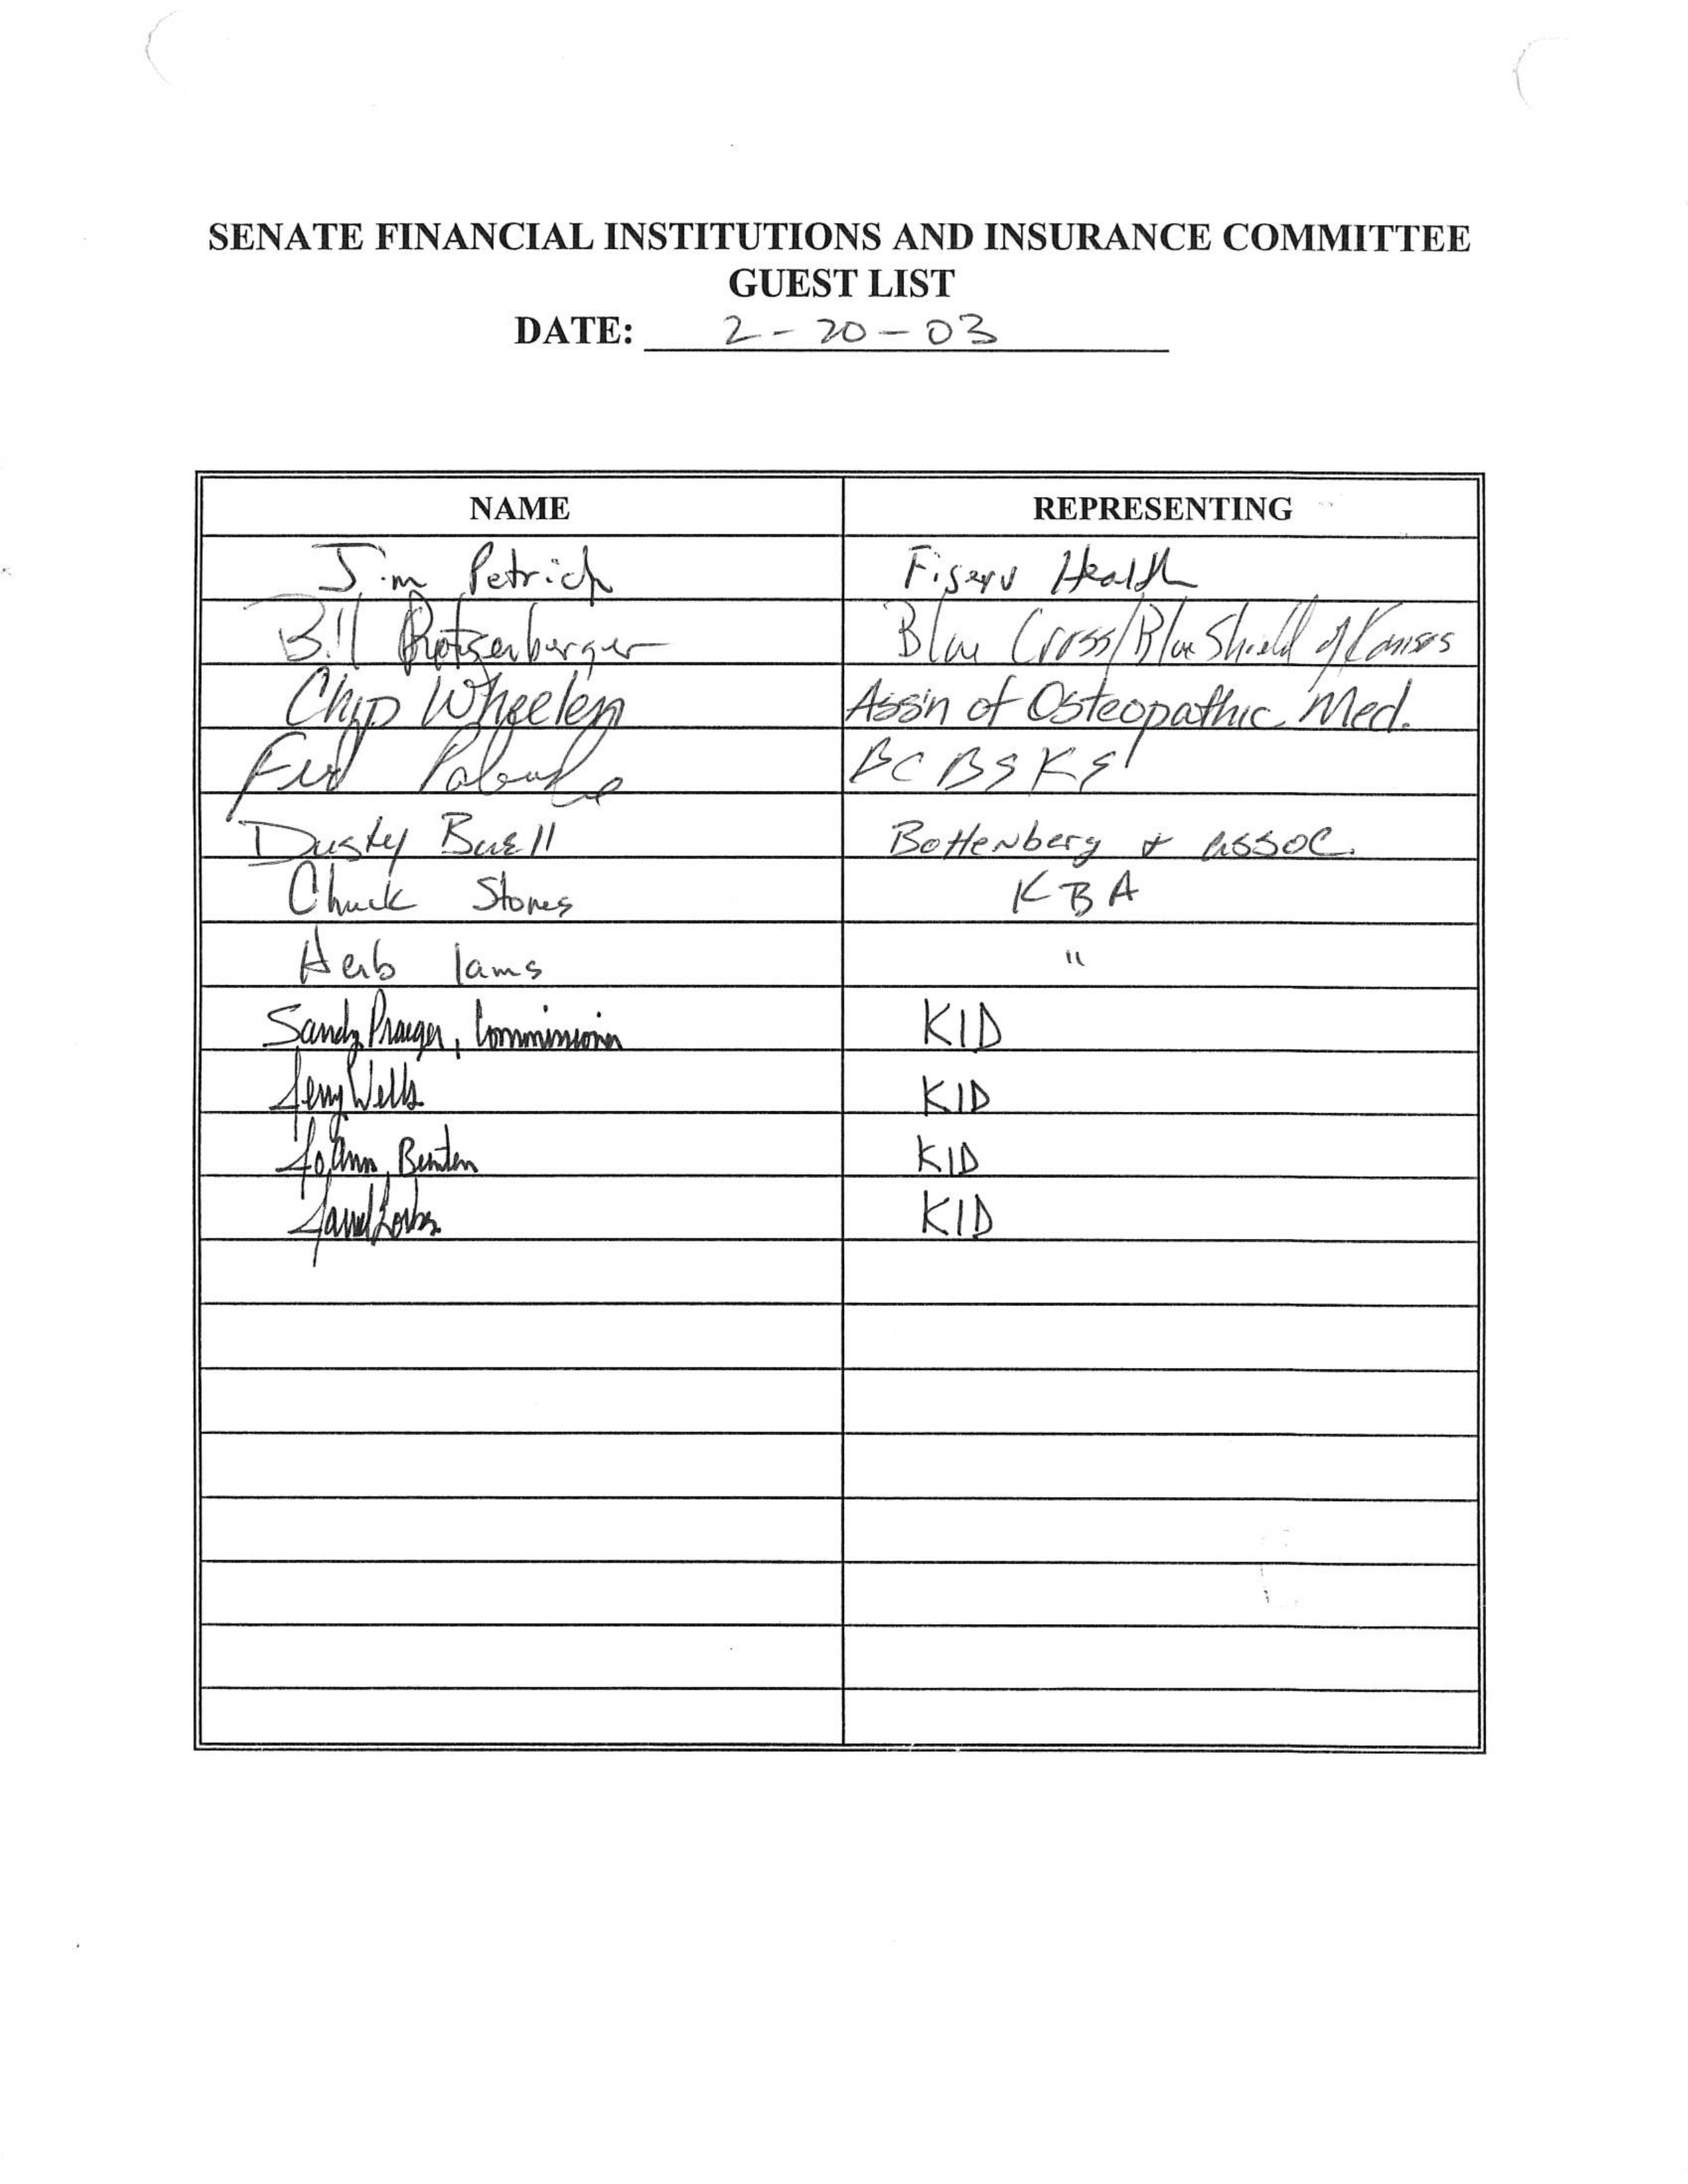 SENATE FINANCIAL INSTITUTIONS AND INSURANCE COMMITTEE
GUEST LIST
DATE: 2-20-03
NAME REPRESENTING
Jim Petrich Fiserv Health
Bill Blue Cross/Blue Shield of Kansas
Chip Wheelen Ass'n of Osteopathic Med.
BCBSKS
Dusty Buell Bottenberg & Assoc.
Chuck Stones KBA
Herb Iams "
Sandy Praeger, Commissioner KID
Jerry Wells KID
JoAnn Bunten KID
KID